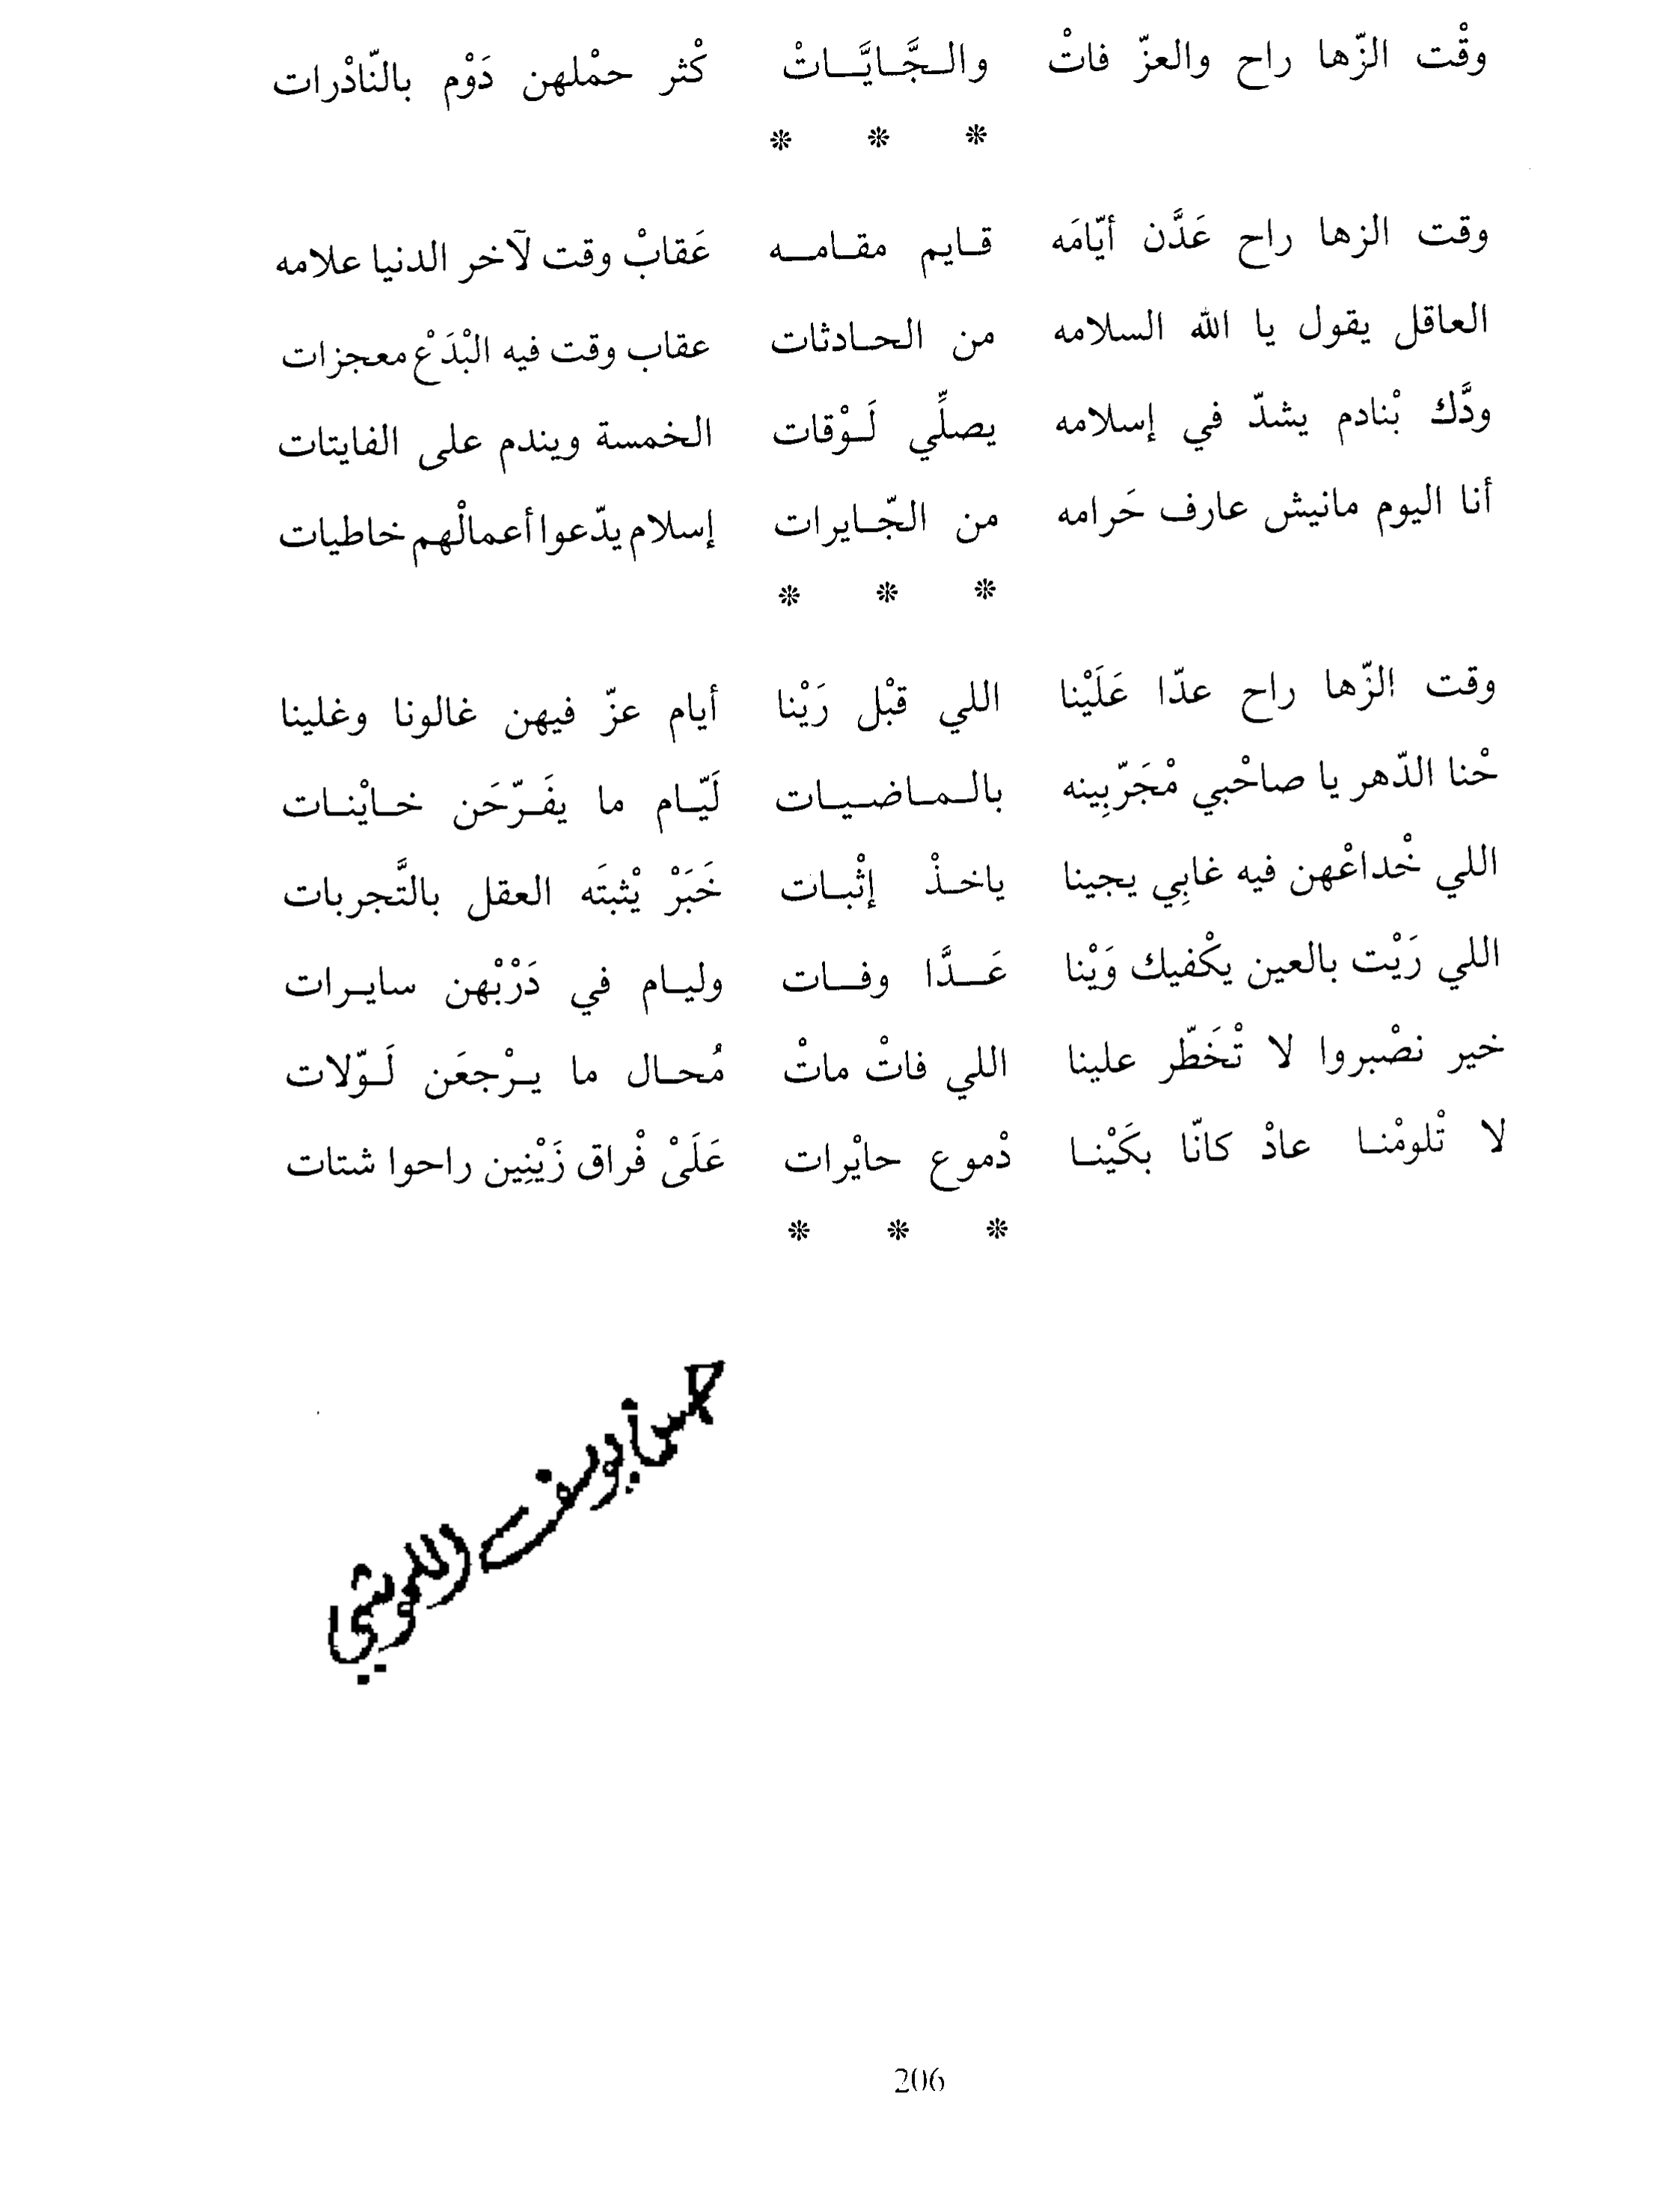 وقْت الزّها راح والعزّ فاتْ والجَّايَّاتْ كْثر حمْلهن دَوْم بالنّادْرات
* * *
وقت الزها راح عَدَّن أيّامَه قايم مقامه عَقابْ وقت لآخر الدنيا علامه
العاقل يقول يا الله السلامه من الحادثات عقاب وقت فيه البْدَعْ معجزات
ودَّك بْنادم يشدّ في إسلامه يصلِّي لَوْقات الخمسة ويندم على الفايتات
أنا اليوم مانيش عارف حَرامه من الجّايرات إسلام يدّعوا أعمالْهم خاطيات
* * *
وقت الزّها راح عدّا عَلَيْنا اللي قبْل رَيْنا أيام عزّ فيهن غالونا وغلينا
حْنا الدّهر يا صاحْبي مْجَرّبِينه بالماضيات لَيّام ما يفَرّحَن خايْنات
اللي خْداعْهن فيه غابِي يجينا ياخذْ إثْبات خَبَرْ يْثبتَه العقل بالتَّجربات
اللي رَيْت بالعين يكْفيك وَيْنا عَدَّا وفات وليام في دَرْبْهن سايرات
خير نصْبروا لا تْخَطّر علينا اللي فاتْ ماتْ مُحال ما يرْجعَن لَوّلات
لا تْلومْنا عادْ كانّا بكَيْنا دْموع حايْرات عَلَىْ فْراق زَيْنِين راحوا شتات
* * *
206